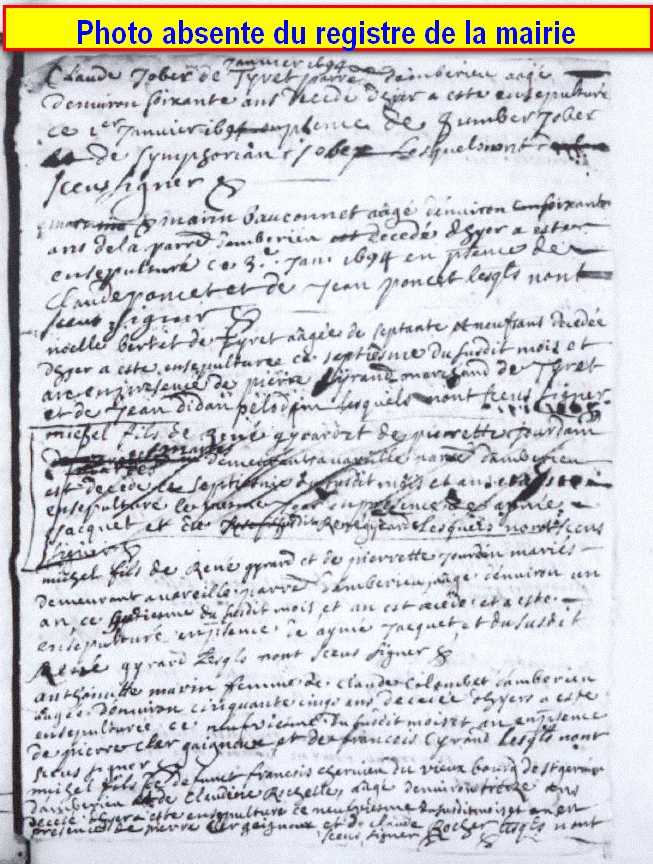 Photo absente du registre de la mairie
Janvier 1694
Claude Jober de Tyret parre damberieu aagé
denviron soixante ans decedé dhyer a esté ensepulturé
ce 1er Janvier 1694 en pšence de humbert Jober
et de Symphorian Jober Lesquels nont
sceus signer
marin bauconnet aagé denviron soixante
ans de la parre damberieu decedé dhyer a esté
ensepulturé ce 3e Janv 1694 en pšence de
Claude poncet et de Jean poncet lesqls nont
sceus signer
noelle bertet de Tyret aagée de septante et neuf ans decedée
dhyer a esté ensepulturée ce septiesme du susdit mois et
an en presence de pierre marchand de Tyret
et de Jean lesquels nont sceus signer
michel fils de René gyrard et de pierrette Jourdain
mariés demeurants a vareille parre damberieu
est decedé le septiesme du susdit mois et an et a esté
ensepulturé le mesme jour en presence de aymé
Jacquet et de René gyrard Lesquels nont sceus
signer
michel fils de René gyrard et de pierrette Jourdin mariés
demeurant a vareille parre damberieu aagé denviron un
an ce du susdit mois et an est decedé et a esté
ensepulturé en pšence de aymé Jacquet et du susdit
René gyrard Lesqls nont sceus signer
anthoinette marin femme de Claude Colombet damberieu
aagée denviron cinquante cinq ans decedée dhyer a esté
ensepulturée ce neufviesme du susdit mois et an en pšence
de pierre Cler gaignaux et de francois Cyrand lesqls nont
sceus signer
michel fils de defunct francois chermieu du vieux bourg de St gerard
damberieu et de Claudine Rochelle aagé denviron treize ans
decedé dhyer a esté ensepulturé ce neufviesme du susdit mois et an en
presence de pierre Cler gaignaux et de Claude Rocher lesqls nont
sceus signer